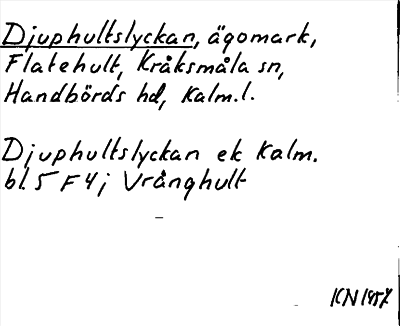 Djuphultslyckan, ägomark,
Flatehult, Kråksmåla sn,
Handbörds hd, Kalm.l.
Djuphultslyckan ek Kalm.
bl 5 F 4 j Vrånghult
KN 1957